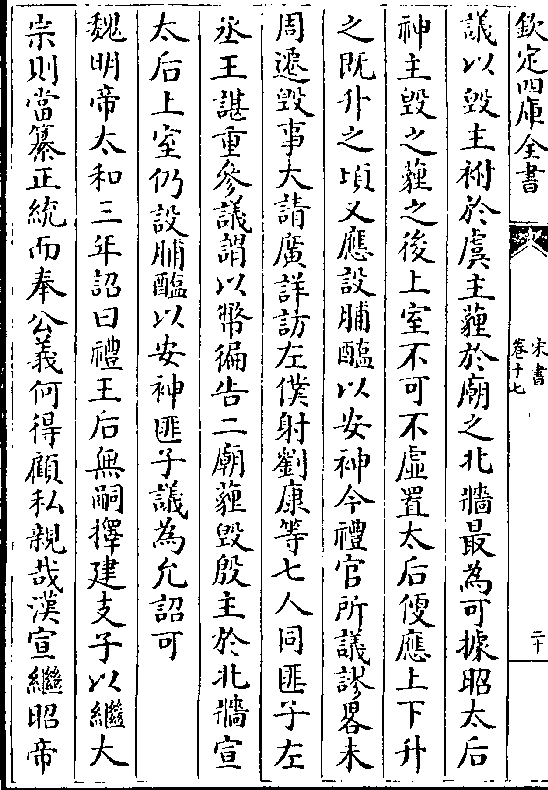 欽定四庫全書
宋書
卷十七
二十
議以毀主祔於虞主薶於廟之北牆最為可據昭太后
神主毀之薶之後上室不可不虛置太后便應上下升
之既升之頃又應設脯醢以安神今禮官所議謬畧未
周遷毀事大請廣詳訪左僕射劉康等七人同匪子左
丞王諶重參議謂以幣徧告二廟薶毀殷主於北牆宣
太后上室仍設脯醢以安神匪子議為允詔可
魏明帝太和三年詔曰禮王后無嗣擇建支子以繼大
宗則當纂正統而奉公義何得顧私親哉漢宣繼昭帝